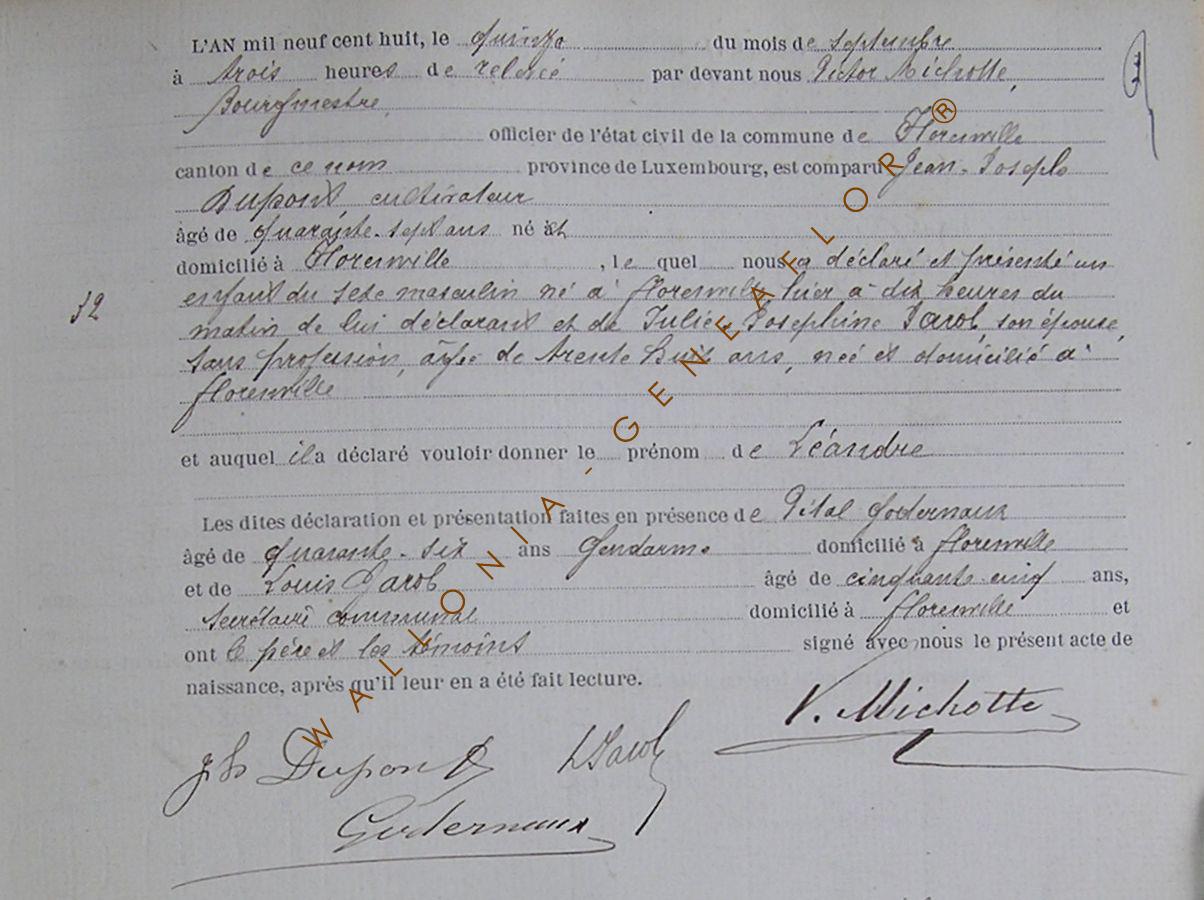 L'AN mil neuf cent huit, le quinze du mois de septembre
à trois heures de relevé par devant nous Victor Michotte,
Bourgmestre,
officier de l'état civil de la commune de Florenville
canton de ce nom province de Luxembourg, est comparu Jean-Joseph
Dupont, cultivateur
âgé de quarante-sept ans né et
domicilié à Florenville, lequel nous a déclaré et présenté un
enfant du sexe masculin né à Florenville hier à dix heures du
52
matin de lui déclarant et de Julie Josephine Jacob, son épouse,
sans profession, âgée de trente huit ans, née et domicilié à
Florenville
et auquel il a déclaré vouloir donner le prénom de Léandre
Les dites déclaration et présentation faites en présence de Vital Godernaux
âgé de quarante-six ans Gendarme domicilié à Florenville
et de Louis Jacob âgé de cinquante-cinq ans,
secrétaire communal domicilié à Florenville et
ont le père et les témoins signé avec nous le présent acte de
naissance, après qu'il leur en a été fait lecture.
V. Michotte
Jh Dupont L Jacob
Godernaux
WALLONIA-GENEAFLOR®